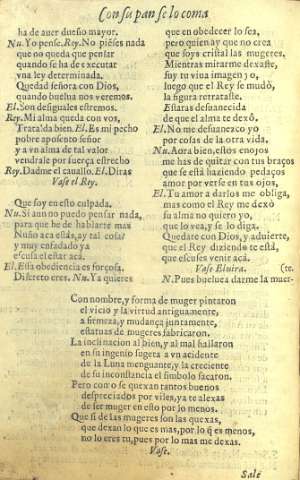 Con su pan se lo coma
ha de auer dueño mayor.
Nu. Yo pense. Rey. No piéses nada
que no queda que pensar
quando se ha de executar
vna ley determinada.
Quedad señora con Dios,
quando bueltas nos veremos.
El. Son desiguales estremos.
Rey. Mi alma queda con vos,
Tratalda bien. El. Es mi pecho
pobre aposento señor
y a vn alma de tal valor
vendrale por fuerça estrecho
Rey. Dadme el cauallo. El. Diras
Vase el Rey.
Que soy en esto culpada.
Nu. Si aun no puedo pensar nada,
para que he de hablarte mas
Nuño aca estás, ay tal cosa?
y muy enfadado ya
escusa el estar acá.
El. Esta obediencia es forçosa.
Discreto eres. Nu. Ya quieres
que en obedecer lo sea,
pero quien ay que no crea
que soys cristal las mugeres.
Mientras mirarme dexaste,
fuy tu viua imagen yo,
luego que el Rey se mudò,
la figura retrataste.
Estaras desuanecida
de que el alma te dexò.
El. No me desuanezco yo
por cosas de la otra vida.
Nu. Aora bien, estos enojos
me has de quitar con tus braços
que se està haziendo pedaços
amor por verse en tus ojos.
El. Tu amor a darlos me obliga,
mas como el Rey me dexò
su alma no quiero yo,
que lo vea, y se lo diga.
Quedate con Dios, y aduierte,
que el Rey diziendo te està,
que escuses venir acà.
Vase Eluira. (te.
N. Pues buelua a darme la muer-
Con nombre, y forma de muger pintaron
el vicio y la virtud antiguamente,
a firmeza, y mudança juntamente,
estatuas de mugeres fabricaron.
La inclinacion al bien, y al mal hallaron
en su ingenio sugeta a vn accidente
de la Luna menguante, y la creciente
de su inconstancia el simbolo sacaron.
Pero como se quexan tantos buenos
despreciados por viles, ya te alexas
de ser muger en esto por lo menos.
Que si de las mugeres son las quexas,
que dexan lo que es mas, por lo q̃ es menos,
no lo eres tu, pues por lo mas me dexas.
Vase.
Sale